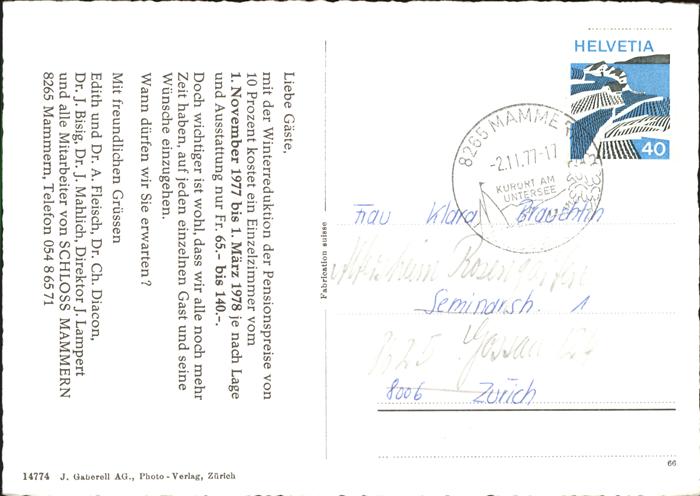 Liebe Gäste,
mit der Winterreduktion der Pensionspreise von
10 Prozent kostet ein Einzelzimmer vom
1. November 1977 bis 1. März 1978 je nach Lage
und Ausstattung nur Fr. 65.- bis 140.-.
Doch wichtiger ist wohl, dass wir alle noch mehr
Zeit haben, auf jeden einzelnen Gast und seine
Wünsche einzugehen.
Wann dürfen wir Sie erwarten?
Mit freundlichen Grüssen
Edith und Dr. A. Fleisch, Dr. Ch. Diacon,
Dr. J. Bisig, Dr. J. Mahlich, Direktor J. Lampert
und alle Mitarbeiter von SCHLOSS MAMMERN
8265 Mammern, Telefon 054 8 65 71
14774 J. Gaberell AG., Photo-Verlag, Zürich
Fabrication suisse
HELVETIA
40
8265 MAMMERN
-2.11.77-17
KURORT AM
UNTERSEE
Frau Klara
Seminarstr. 1
8625 Gossau
8006 Zürich
66